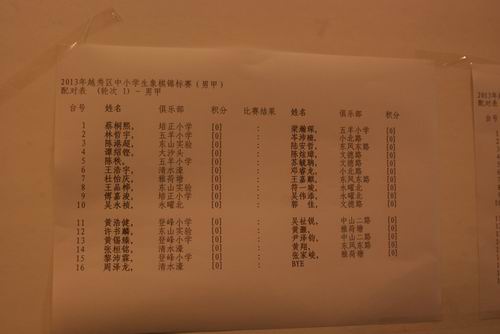 2013年越秀区中小学生象棋锦标赛(男甲)
配对表 (轮次 1) - 男甲
台号 姓名 俱乐部 积分 比赛结果 姓名 俱乐部 积分
1 蔡桐熙, 培正小学 [0] : 梁瀚琛, 五羊小学 [0]
2 林哲宇, 五羊小学 [0] : 岑沛 小北路 [0]
3 陈港超, 东山实验 [0] : 陆安哲, 东风东路 [0]
4 谭绍锴, 大沙头 [0] : 陈炫璋, 文德路 [0]
5 陈秩, 五羊小学 [0] : 苏毓聃, 文德路 [0]
6 王浩宇, 清水濠 [0] : 邓睿龙, 小北路 [0]
7 杜怡庆, 雅荷塘 [0] : 王嘉麒, 东风东路 [0]
8 王晶桦, 东山实验 [0] : 符一晙, 水曜北 [0]
9 傅嘉浚, 培正小学 [0] : 吴伟添, 水曜北 [0]
10 吴永祺, 水曜北 [0] : 郭 佳, 文德路 [0]
11 黄浩健, 登峰小学 [0] : 吴祉锐, 中山二路 [0]
12 许书麟, 东山实验 [0] : 黄灏, 雅荷塘 [0]
13 黄锡臻, 登峰小学 [0] : 尹泽钧, 中山二路 [0]
14 张桓铭, 清水濠 [0] : 黄翔, 东风东路 [0]
15 黎沛霖, 登峰小学 [0] : 张家峻, 雅荷塘 [0]
16 周泽龙, 清水濠 [0] : BYE